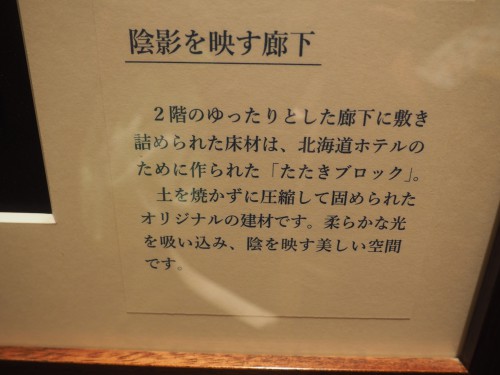 陰影を映す廊下
２階のゆったりとした廊下に敷き
詰められた床材は、北海道ホテルの
ために作られた「たたきブロック」。
土を焼かずに圧縮して固められた
オリジナルの建材です。柔らかな光
を吸い込み、陰を映す美しい空間
です。